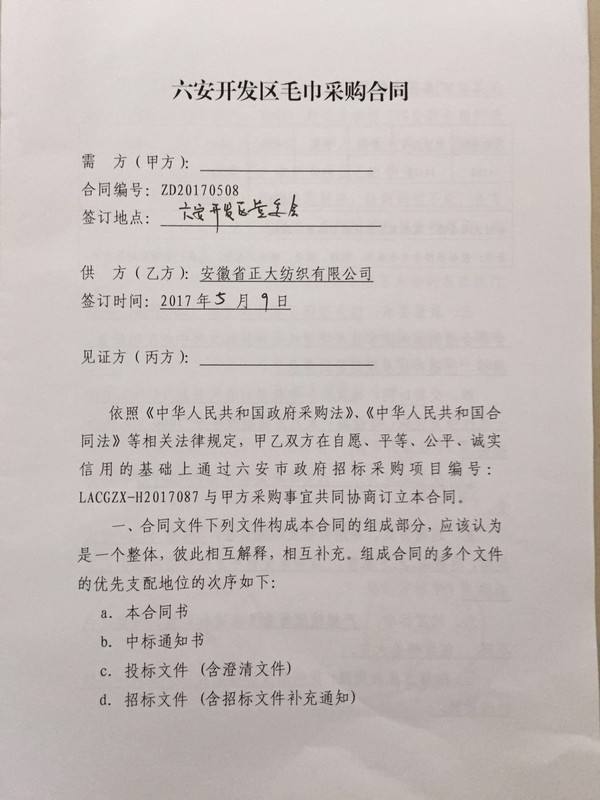 六安开发区毛巾采购合同
需 方(甲方):
合同编号:ZD20170508
签订地点:六安开发区管委会
供 方(乙方):安徽省正大纺织有限公司
签订时间:2017年5月9日
见证方(丙方):
依照《中华人民共和国政府采购法》、《中华人民共和国合
同法》等相关法律规定,甲乙双方在自愿、平等、公平、诚实
信用的基础上通过六安市政府招标采购项目编号:
LACGZX-H2017087与甲方采购事宜共同协商订立本合同。
一、合同文件下列文件构成本合同的组成部分,应该认为
是一个整体,彼此相互解释,相互补充。组成合同的多个文件
的优先支配地位的次序如下:
a. 本合同书
b. 中标通知书
c. 投标文件(含澄清文件)
d. 招标文件(含招标文件补充通知)